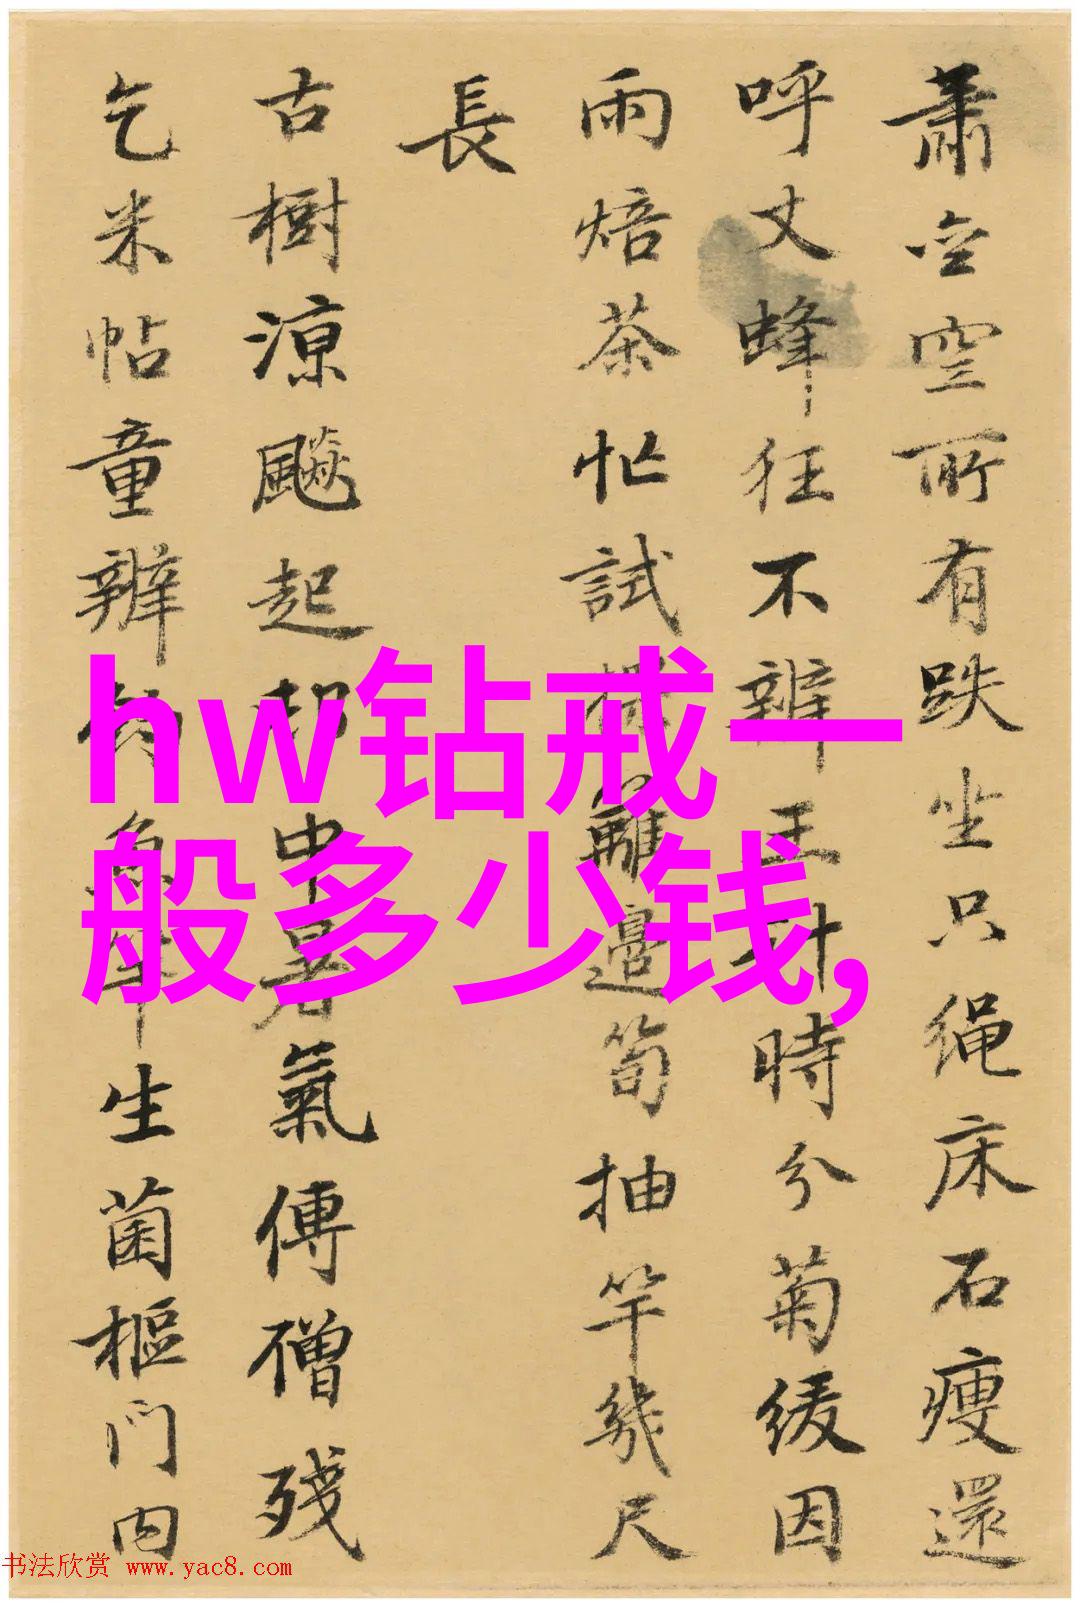 蕭仝空所有跌坐只绳床石瘦還
呼丈蜂狂不辨王計時分菊緩因
雨焙茶忙試離邊筍抽竿幾尺
長
古樹涼飈起却中暑氣傳僧殘
乞米帖童辨魚生菌樞門内
hw钻戒一
般多少钱,
书法欣赏 www.yac8.com